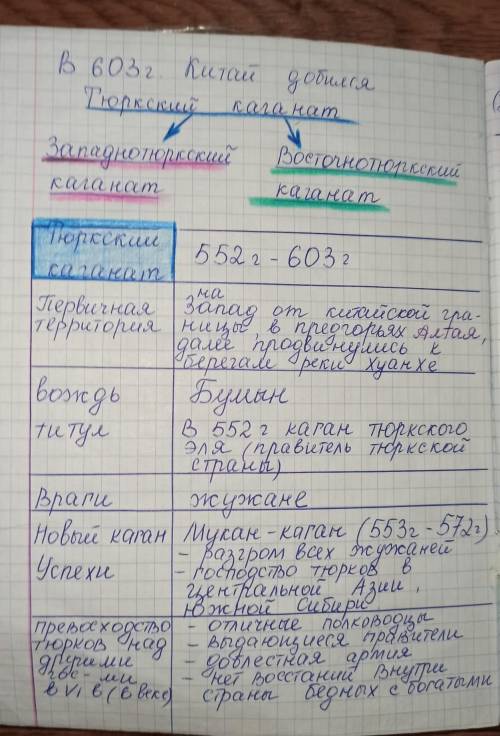 В 603г Китай добился
Тюркский каганат
Западнотюркский
каганат
Восточнотюркский
каганат
Тюркский
каганат
552г - 603г
Первичная
территория
на
Запад от китайской гра-
ницы в предгорьях Алтая,
далее продвинулись к
берегам реки Хуанхе
вождь
Бумын
титул
В 552г каган тюркского
эля (правитель тюркской
страны)
Враги
жужане
Новый каган
Мукан-каган (553г-572г)
Успехи
- разгром всех жужаней
- господство тюрков в
центральной Азии,
Южной Сибири
превосходство
тюрков над
другими
гос-ми
в VI в (6 веке)
- отличные полководцы
- выдающиеся правители
- доблестная армия
- нет восстаний внутри
страны бедных с богатыми